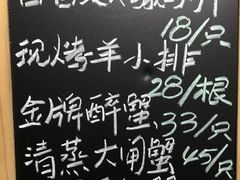 18/只
现烤羊小排
28/根
金牌醉蟹 33/只
清蒸大闸蟹 45/只